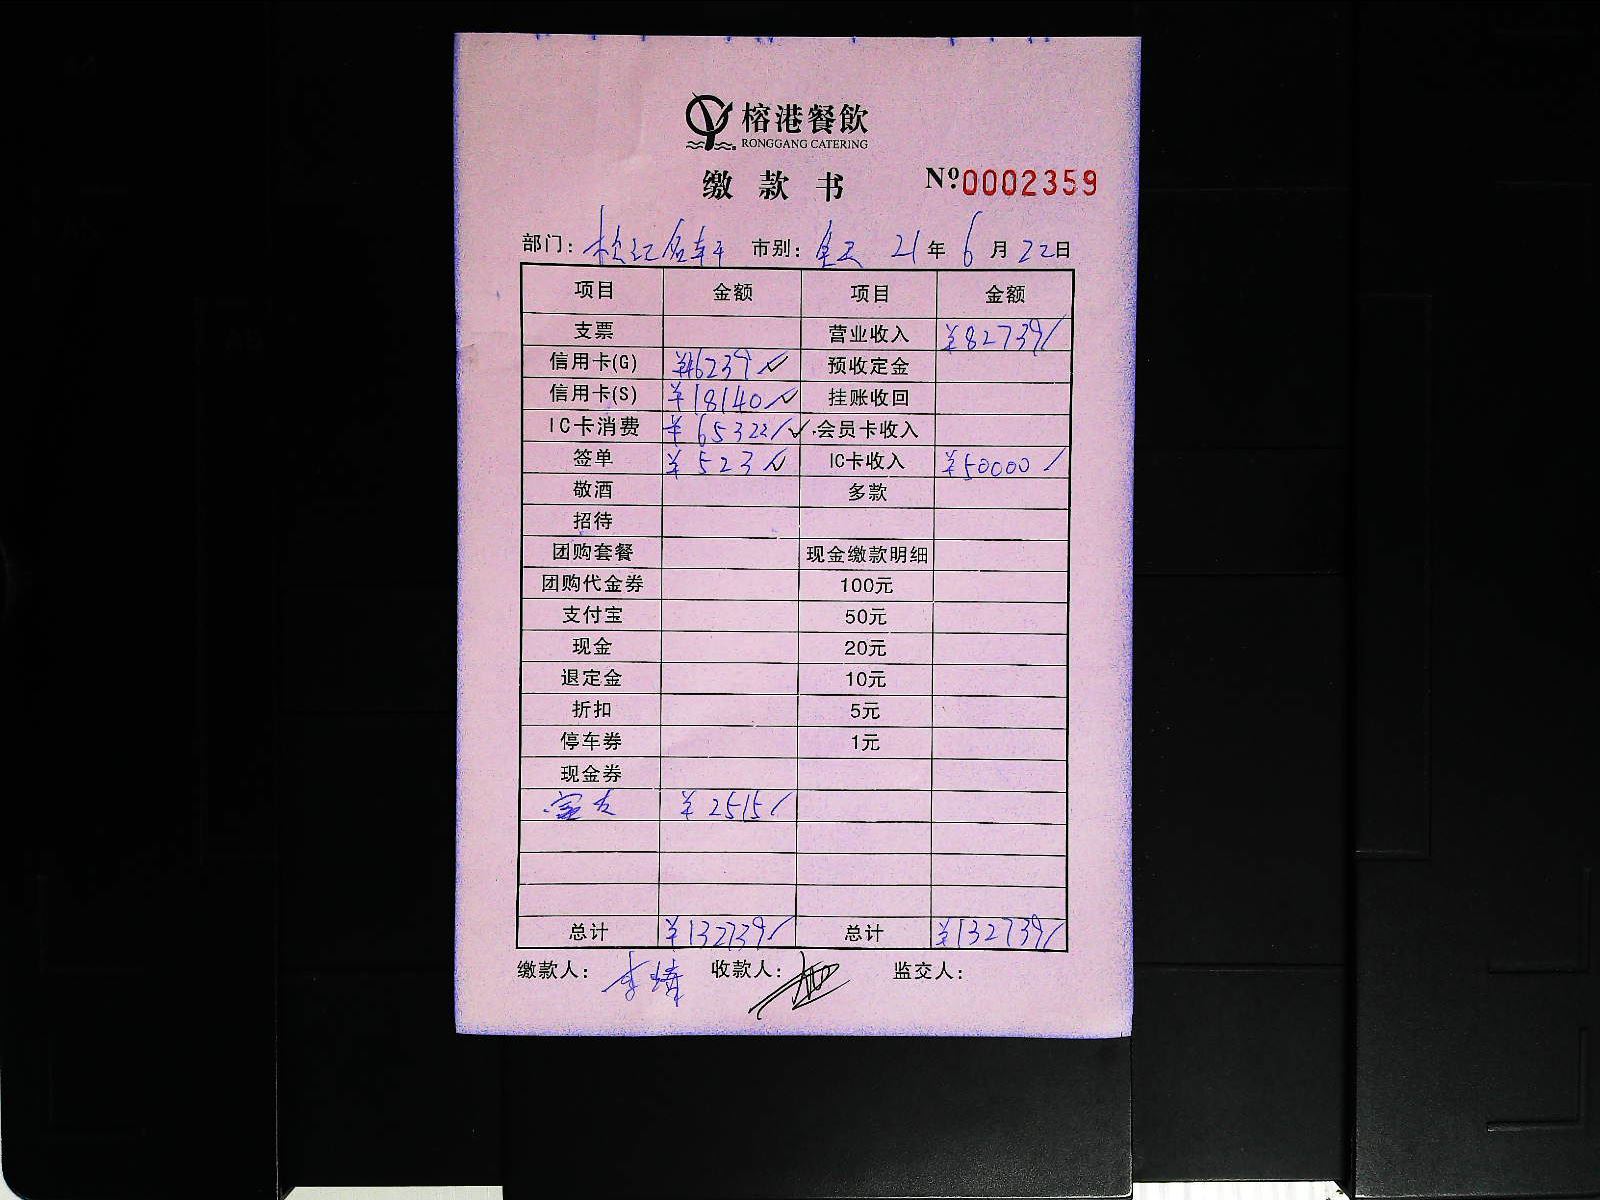 榕港餐飲
RONGGANG CATERING
缴款书 Nº:0002359
部门: 市别: 全天 21年 6月 22日
项目 金额 项目 金额
支票 营业收入 ¥82739
信用卡(G) ¥46239 预收定金
信用卡(S) ¥18140 挂账收回
IC卡消费 ¥65322 会员卡收入
签单 ¥523 IC卡收入 ¥50000
敬酒 多款
招待
团购套餐 现金缴款明细
团购代金券 100元
支付宝 50元
现金 20元
退定金 10元
折扣 5元
停车券 1元
现金券
¥2515
总计 ¥132739 总计 ¥132739
缴款人: 收款人: 监交人: